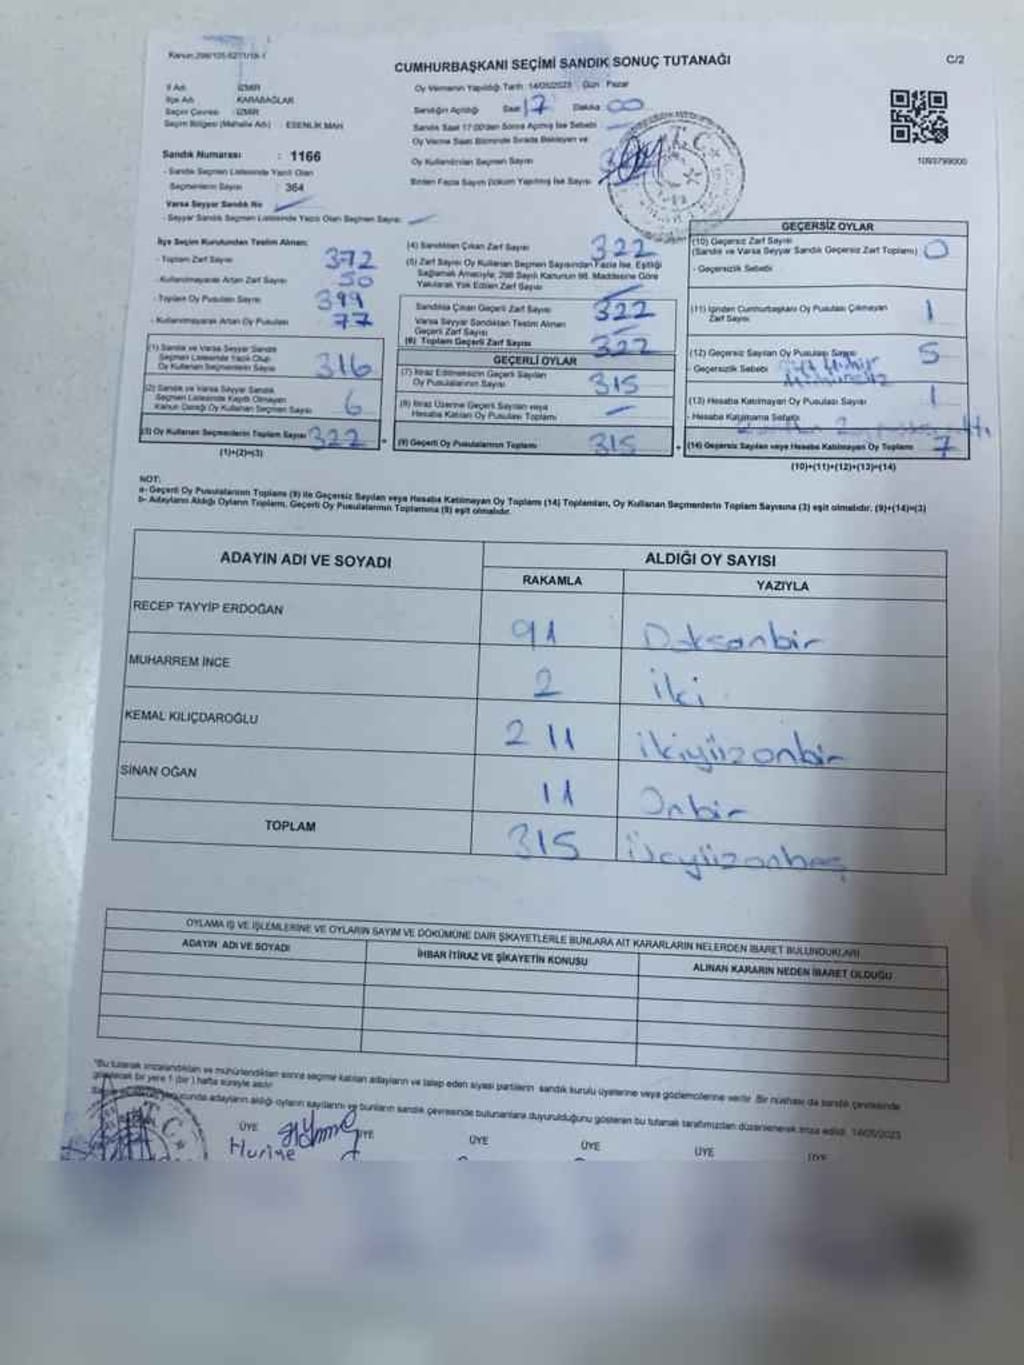 C/2
CUMHURBAŞKANI SEÇİMİ SANDIK SONUÇ TUTANAĞI
İl Adı : İZMİR
İlçe Adı : KARABAĞLAR
Seçim Çevresi : İZMİR
Seçim Bölgesi (Mahalle Adı) : ESENLİK MAH
Sandık Numarası : 1166
- Sandık Seçmen Listesinde Yazılı Olan
Seçmenlerin Sayısı : 364
Varsa Seyyar Sandık No
- Seyyar Sandık Seçmen Listesinde Yazılı Olan Seçmen Sayısı:
Oy Vermenin Yapıldığı Tarih: 14/05/2023 Gün : Pazar
Sandığın Açıldığı Saat 17 Dakika 00
Sandık Saat 17:00'den Sonra Açılmış İse Sebebi
Oy Verme Saati Bitiminde Sırada Bekleyen ve
Oy Kullandırılan Seçmen Sayısı
Birden Fazla Sayım Döküm Yapılmış İse Sayısı
T.C.
1093799000
İlçe Seçim Kurulundan Teslim Alınan:
- Toplam Zarf Sayısı 372
- Kullanılmayarak Artan Zarf Sayısı 50
- Toplam Oy Pusulası Sayısı 399
- Kullanılmayarak Artan Oy Pusulası 77
(1) Sandık ve Varsa Seyyar Sandık
Seçmen Listesinde Yazılı Olup
Oy Kullanan Seçmenlerin Sayısı 316
(2) Sandık ve Varsa Seyyar Sandık
Seçmen Listesinde Kayıtlı Olmayan
Kanun Gereği Oy Kullanan Seçmen Sayısı 6
(3) Oy Kullanan Seçmenlerin Toplam Sayısı 322
(1)+(2)=(3)
(4) Sandıktan Çıkan Zarf Sayısı 322
(5) Zarf Sayısı Oy Kullanan Seçmen Sayısından Fazla İse, Eşitliği
Sağlamak Amacıyla, 298 Sayılı Kanunun 98. Maddesine Göre
Yakılarak Yok Edilen Zarf Sayısı
Sandıkta Çıkan Geçerli Zarf Sayısı 322
Varsa Seyyar Sandıktan Teslim Alınan
Geçerli Zarf Sayısı
(6) Toplam Geçerli Zarf Sayısı 322
GEÇERLİ OYLAR
(7) İtiraz Edilmeksizin Geçerli Sayılan
Oy Pusulalarının Sayısı 315
(8) İtiraz Üzerine Geçerli Sayılan veya
Hesaba Katılan Oy Pusulası Toplamı
(9) Geçerli Oy Pusulalarının Toplamı 315
GEÇERSİZ OYLAR
(10) Geçersiz Zarf Sayısı
(Sandık ve Varsa Seyyar Sandık Geçersiz Zarf Toplamı) 0
- Geçersizlik Sebebi
(11) İçinden Cumhurbaşkanı Oy Pusulası Çıkmayan
Zarf Sayısı 1
(12) Geçersiz Sayılan Oy Pusulası Sayısı 5
- Geçersizlik Sebebi
(13) Hesaba Katılmayan Oy Pusulası Sayısı 1
- Hesaba Katılmama Sebebi
(14) Geçersiz Sayılan veya Hesaba Katılmayan Oy Toplamı 7
(10)+(11)+(12)+(13)=(14)
NOT:
a- Geçerli Oy Pusulalarının Toplamı (9) ile Geçersiz Sayılan veya Hesaba Katılmayan Oy Toplamı (14) Toplamları, Oy Kullanan Seçmenlerin Toplam Sayısına (3) eşit olmalıdır. (9)+(14)=(3)
b- Adayların Aldığı Oyların Toplamı, Geçerli Oy Pusulalarının Toplamına (9) eşit olmalıdır.
ADAYIN ADI VE SOYADI
ALDIĞI OY SAYISI
RAKAMLA YAZIYLA
RECEP TAYYİP ERDOĞAN 91 Doksanbir
MUHARREM İNCE 2 iki
KEMAL KILIÇDAROĞLU 211 ikiyüzonbir
SİNAN OĞAN 11 Onbir
TOPLAM 315 üçyüzonbeş
OYLAMA İŞ VE İŞLEMLERİNE VE OYLARIN SAYIM VE DÖKÜMÜNE DAİR ŞİKAYETLERLE BUNLARA AİT KARARLARIN NELERDEN İBARET BULUNDUKLARI
ADAYIN ADI VE SOYADI
İHBAR İTİRAZ VE ŞİKAYETİN KONUSU
ALINAN KARARIN NEDEN İBARET OLDUĞU
"Bu tutanak imzalandıktan ve mühürlendikten sonra seçime katılan adayların ve talep eden siyasi partilerin sandık kurulu üyelerine veya gözlemcilerine verilir. Bir nüshası da sandık çevresinde
görülecek bir yere 1 (bir) hafta süreyle asılır.
adayların aldığı oyların sayılarını ve bunların sandık çevresinde bulunanlara duyurulduğunu gösteren bu tutanak tarafımızdan düzenlenerek imza edildi. 14/05/2023
ÜYE ÜYE ÜYE ÜYE ÜYE ÜYE